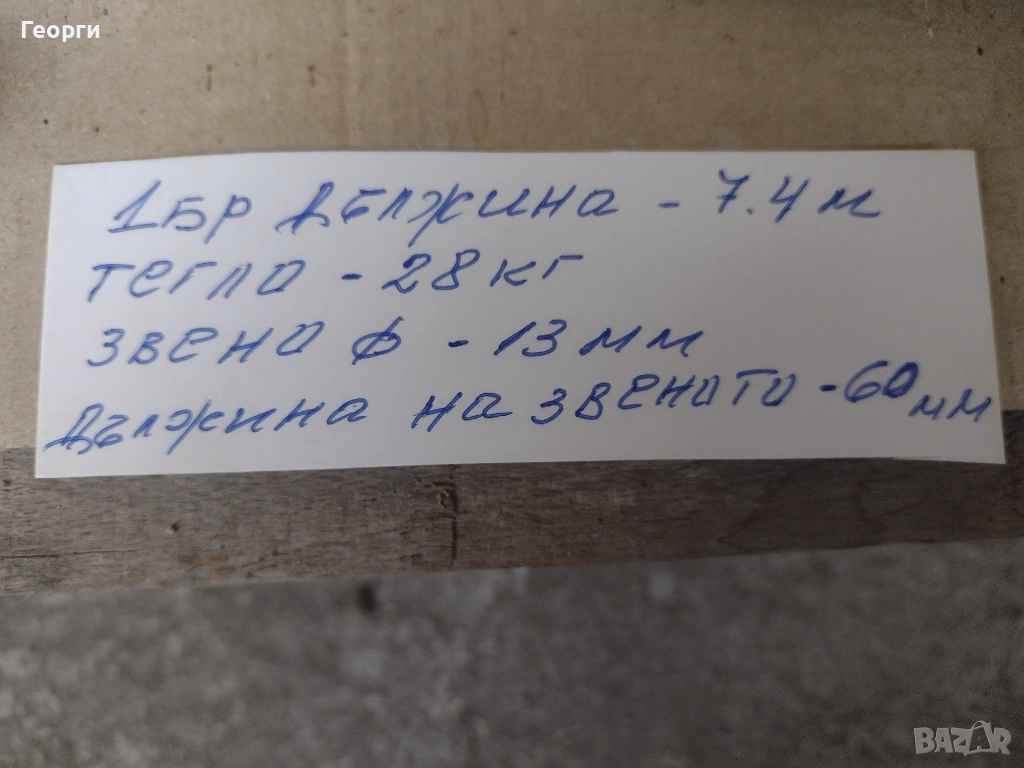 Георги
1БР Дължина - 7.4 м
тегло - 28 кг
звено ф - 13 мм
Дължина на звеното - 60 мм
BAZAR